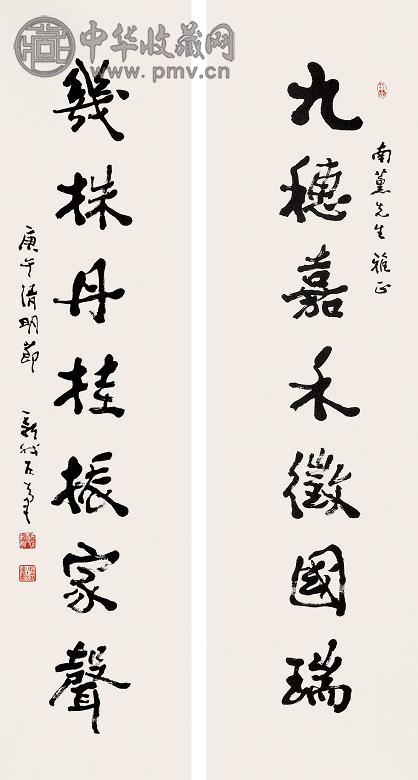 中华收藏网
www.pmv.cn
南薰先生雅正
九穗嘉禾徵國瑞
幾株丹桂振家聲
庚午清明節